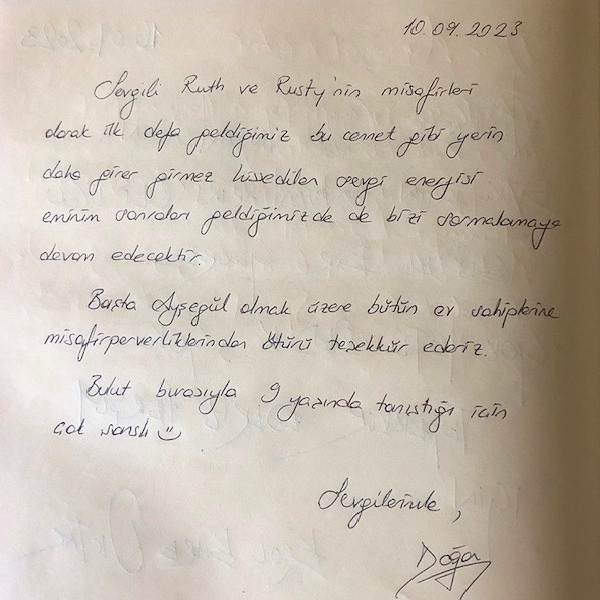 10.09.2023
Sevgili Ruth ve Rusty'nin misafirleri
olarak ilk defa geldiğimiz bu cennet gibi yerin
daha girer girmez hissedilen sevgi energisi
eminim sonraları geldiğimizde de bizi sarmalamaya
devam edecektir.
Başta Ayşegül olmak üzere bütün ev sahiplerine
misafirperverliklerinden ötürü teşekkür ederiz.
Bulut burasıyla 9 yaşında tanıştığı için
çok şanslı
Sevgilerimle,
Doğan